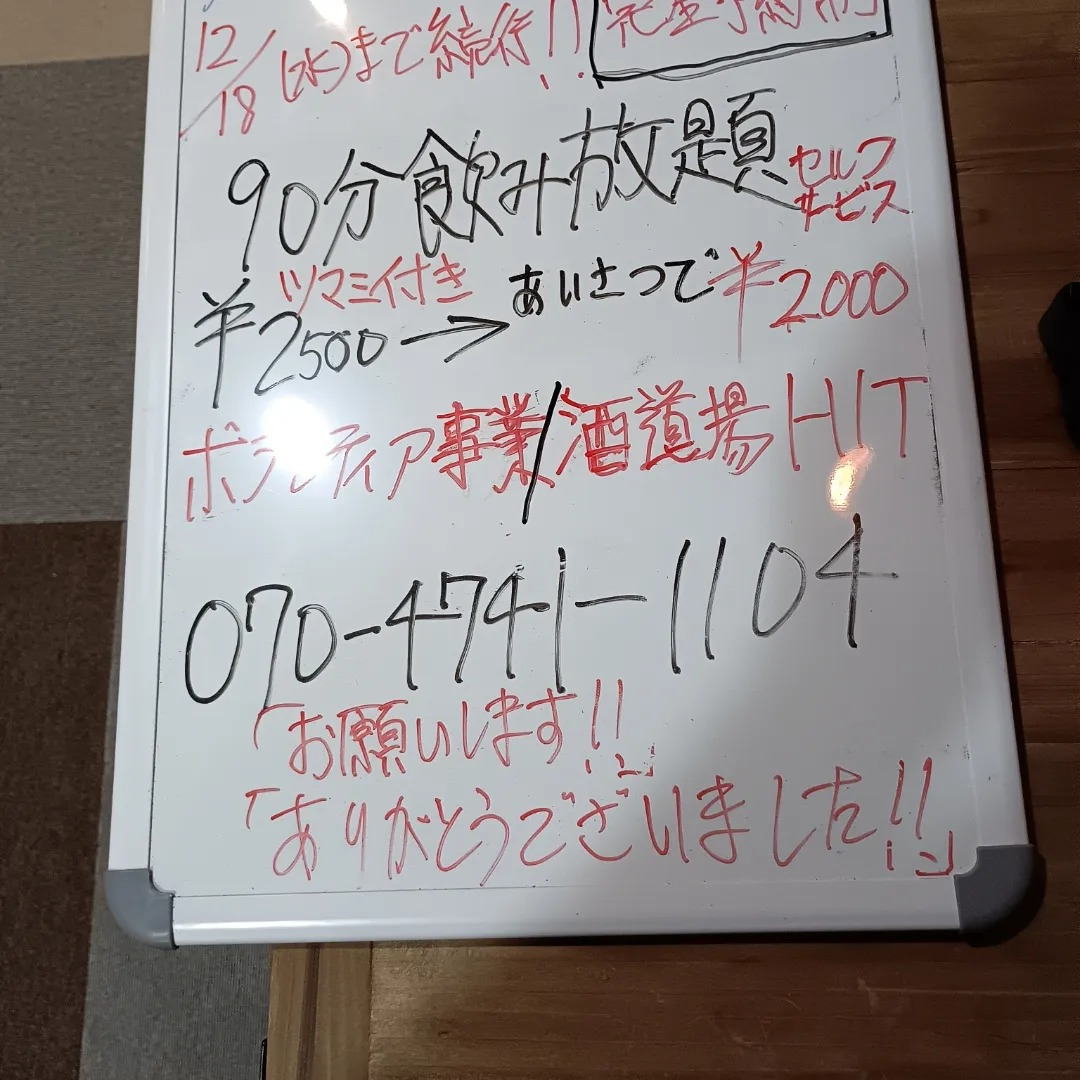 12/18(水)まで続行!!
完全予約制
90分飲み放題
セルフ
サービス
ツマミ付き
¥2500→あいさつで¥2000
ボランティア事業/酒道場HIT
070-4741-1104
「お願いします!!」
「ありがとうございました!!」